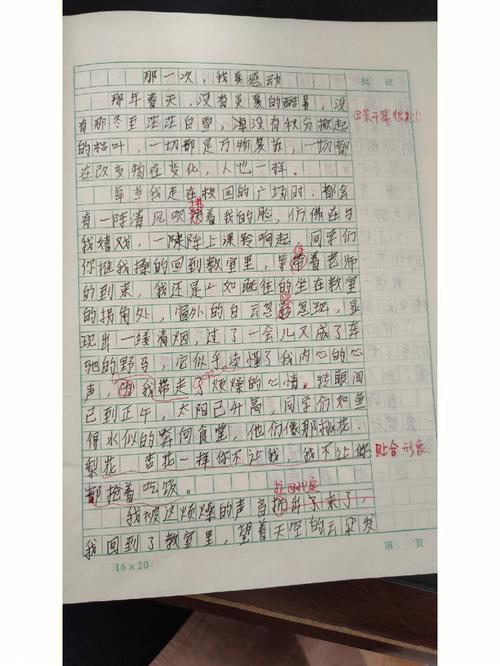 那一次，我真感动
批 语
那年春天，没有炎夏的酷暑，没
有那冬至茫茫白雪，海没有秋分掀起
的枯叶，一切都是万物复苏，一切都
在改变物在变化，人也一样。
每当我走在校园的广场时，都会
有一阵清风吹着我的脸，仿佛在与
我嬉戏，一阵阵上课铃响起，同学们
你推我搡的回到教室里，等待着老师
的到来，我还是如既往的坐在教室
的拐角处，窗外的白云忽忽现，显
现出一缕清烟，过了一会儿又成了奔
驰的野马，它似乎读懂了我内心的心
声，为我带走了烦燥的心情。转眼间
已到正午，太阳已升高，同学们如鱼
得水似的奔向食堂，他们像那桃花、
梨花、杏花一样你不让我，我不让你
贴合形象
都抢着吃饭。
我被这烦燥的声音了，
我回到了教室里，望着天空的云朵发
16×20
第 页